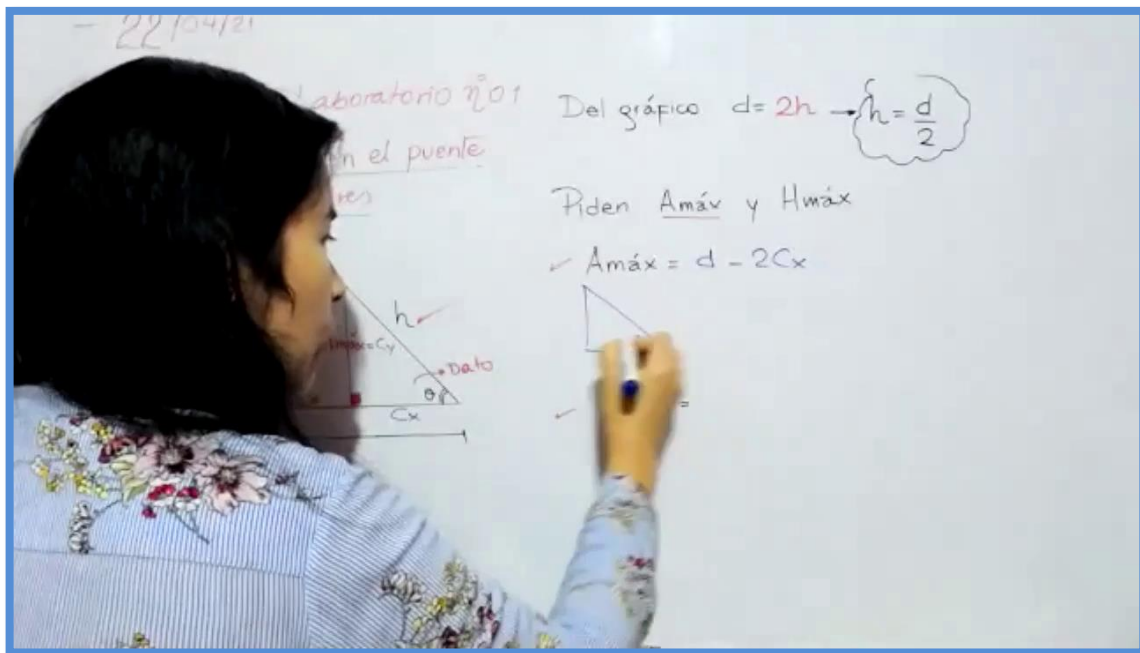 - 22/04/21
Laboratorio n°01
en el puente
Del gráfico d= 2h → h = d/2
Piden Amáx y Hmáx
✓ Amáx = d - 2Cx
h ✓
Hmáx=Cy
Dato
θ
Cx
✓ =